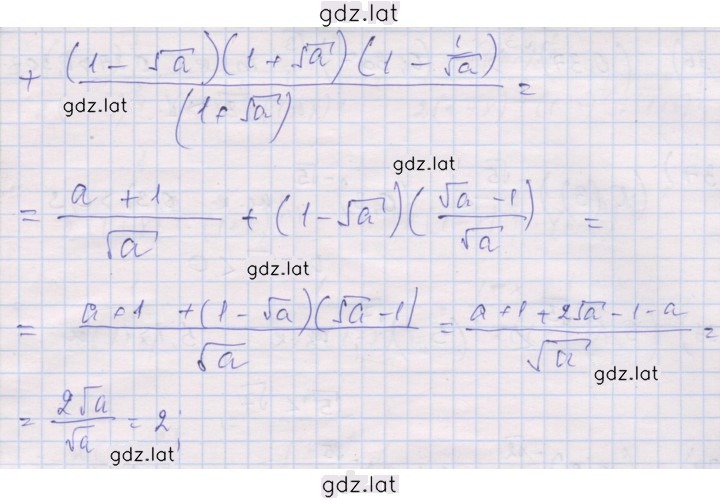 gdz.lat
+ \frac{(1 - \sqrt{a})(1 + \sqrt{a})(1 - \frac{1}{\sqrt{a}})}{(1 + \sqrt{a})} =
gdz.lat
gdz.lat
= \frac{a + 1}{\sqrt{a}} + (1 - \sqrt{a})(\frac{\sqrt{a} - 1}{\sqrt{a}}) =
gdz.lat
= \frac{a + 1 + (1 - \sqrt{a})(\sqrt{a} - 1)}{\sqrt{a}} = \frac{a + 1 + 2\sqrt{a} - 1 - a}{\sqrt{a}} =
gdz.lat
= \frac{2\sqrt{a}}{\sqrt{a}} = 2;
gdz.lat
gdz.lat